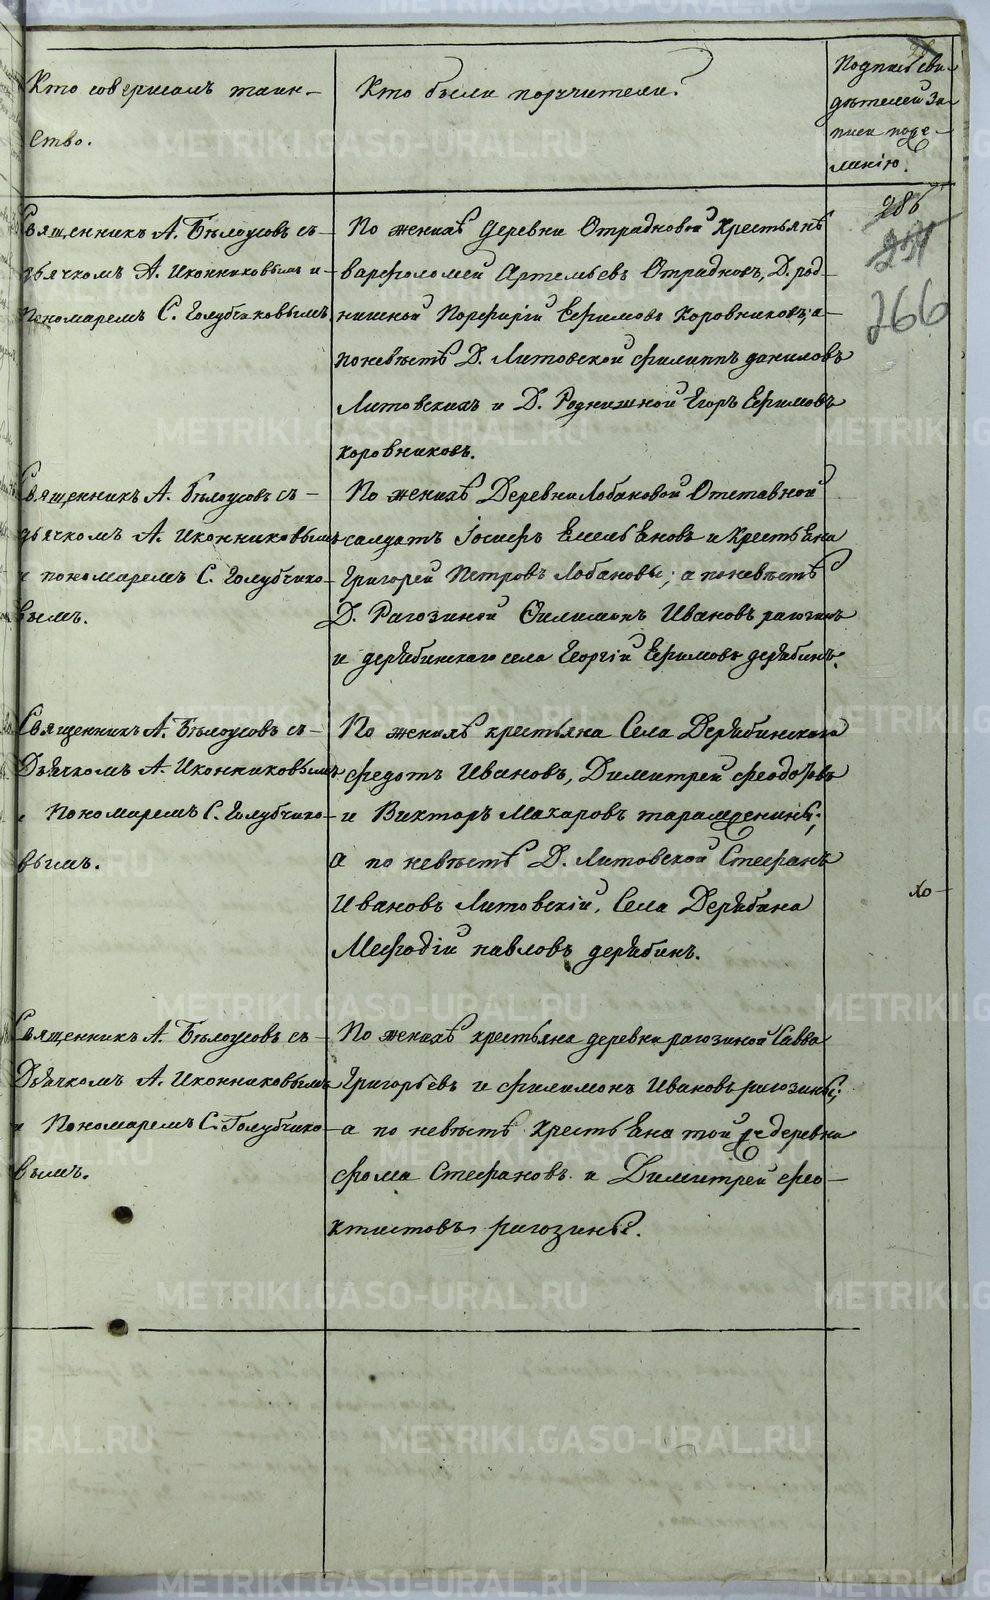 Кто совершалъ таин-
ство.
Кто были поручители.
Подпись сви-
дѣтелей за-
писи по же-
ланію.
285
266
Священникъ А. Бѣлоусовъ съ-
дьячкомъ А. Иконниковымъ и-
Пономаремъ С. Голубчиковымъ
По женихѣ Деревни Отрадновой Крестьянѣ
варфоломей Артемьевъ Отрадновъ, Д. род-
нишной Порфирій Ефимовъ Коровниковъ; а-
по невѣстѣ Д. Литовской филиппъ даниловъ
Литовскихъ и Д. Роднишной Егоръ Ефимовъ
коровниковъ.
Священникъ А. Бѣлоусовъ съ-
дьячкомъ А. Иконниковымъ
и пономаремъ С. Голубчико-
вымъ.
По женихѣ Деревни Лобановой Отставной
салдатъ Іосифъ Емельяновъ и Крестьяна
Григорей Петровъ Лобановы; а по невѣстѣ
Д. Рагозиной Филимонъ Ивановъ рагозинъ
и дерябинскаго села Георгій Ефимовъ дерябинъ.
Священникъ А. Бѣлоусовъ съ-
Дьячкомъ А. Иконниковымъ
и Пономаремъ С. Голубчико-
вымъ.
По женихѣ крестьяна Села Дерябинскаго
федотъ Ивановъ, Димитрей феодоровъ
и Викторъ Макаровъ таращенины;
а по невѣстѣ Д. Литовской Стефанъ
Ивановъ Литовскій, Села Дерябина
Мефодій павловъ дерябинъ.
хо-
Священникъ А. Бѣлоусовъ съ-
Дьячкомъ А. Иконниковымъ
и Пономаремъ С. Голубчико-
вымъ.
По женихѣ крестьяна деревни рагозиной Савва
Григорьевъ и филимонъ Ивановъ рагозины;
а по невѣстѣ Крестьяна той же деревни
фома Стефановъ и Димитрей фео-
ктистовъ рагозины.
METRIKI.GASO-URAL.RU